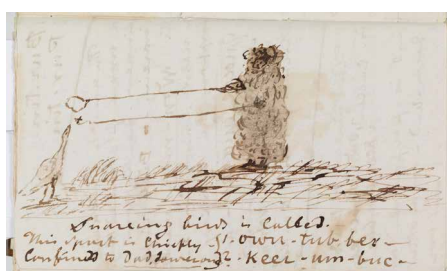 Snaring bird is called.
This sport is Chiefly St-own-tub-ber —
Confined to Keer-um-buc —